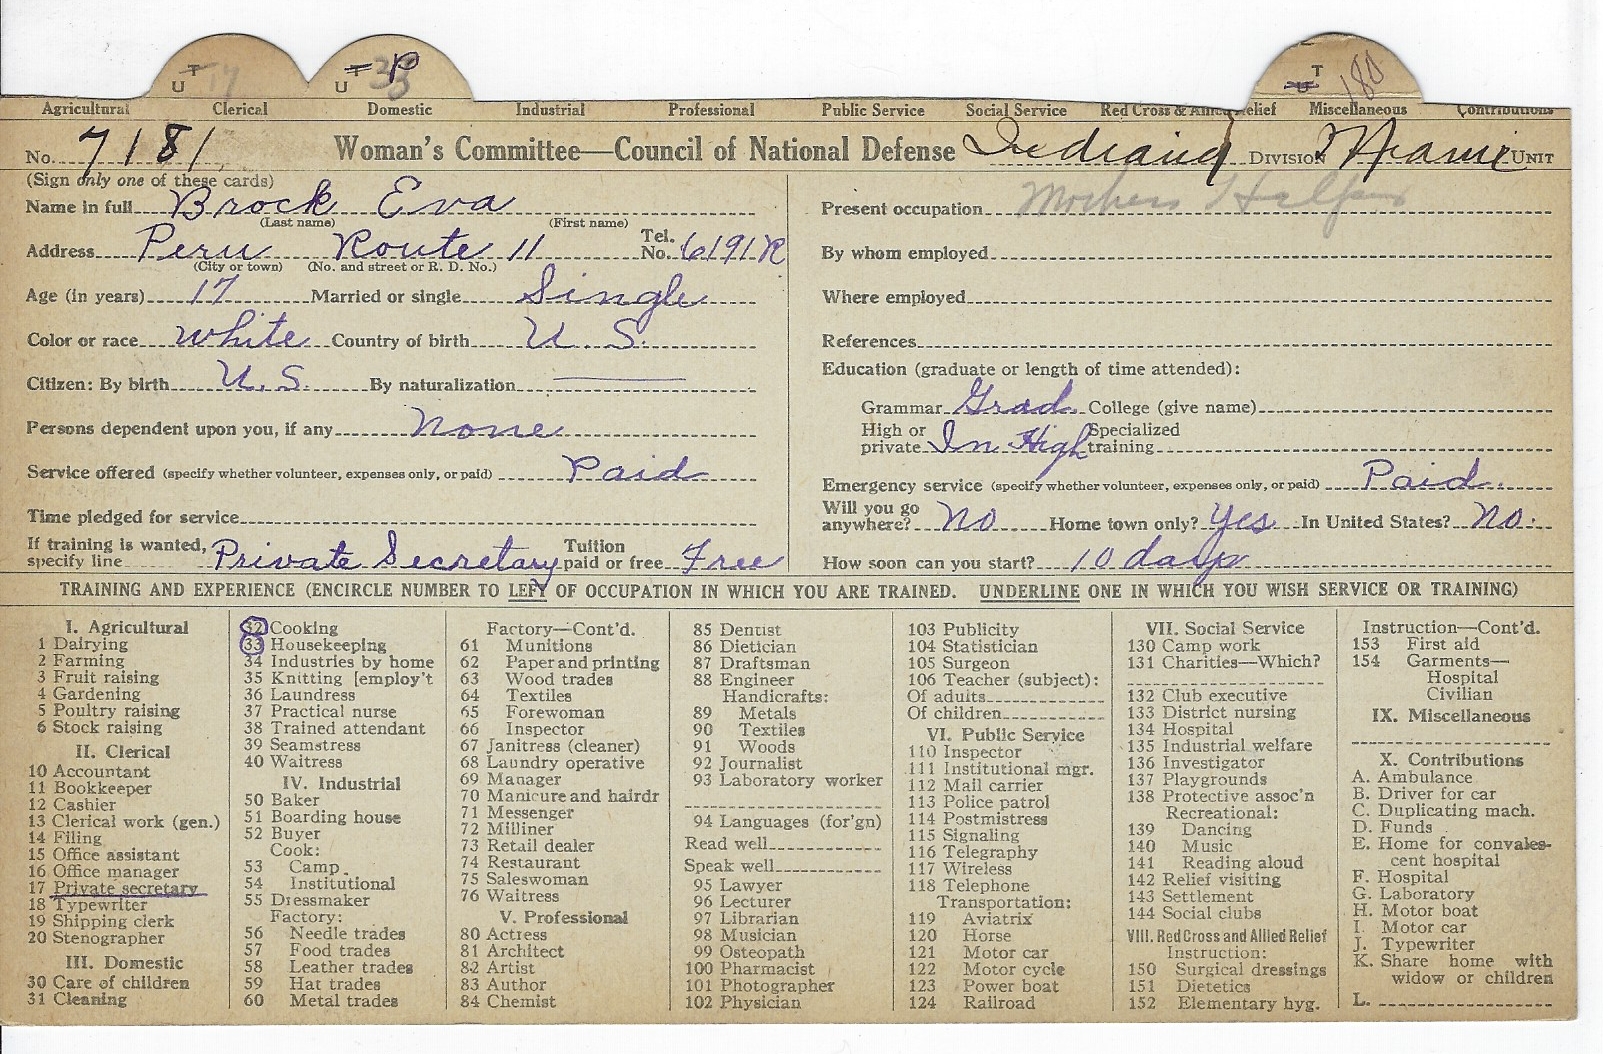 U T 17
U T P 33
U T 180
Agricultural Clerical Domestic Industrial Professional Public Service Social Service Red Cross & Allied Relief Miscellaneous Contributions
No. 7181 Woman's Committee—Council of National Defense Indiana DIVISION Miami UNIT
(Sign only one of these cards)
Name in full Brock Eva
(Last name) (First name)
Address Peru Route 11 Tel. No. 6191R
(City or town) (No. and street or R. D. No.)
Age (in years) 17 Married or single Single
Color or race white Country of birth U. S.
Citizen: By birth U. S. By naturalization
Persons dependent upon you, if any None
Service offered (specify whether volunteer, expenses only, or paid) Paid
Time pledged for service
If training is wanted, specify line Private Secretary Tuition paid or free Free
Present occupation Mothers Helper
By whom employed
Where employed
References
Education (graduate or length of time attended):
Grammar Grad. College (give name)
High or private In High Specialized training
Emergency service (specify whether volunteer, expenses only, or paid) Paid.
Will you go anywhere? No Home town only? Yes In United States? No.
How soon can you start? 10 days
TRAINING AND EXPERIENCE (ENCIRCLE NUMBER TO LEFT OF OCCUPATION IN WHICH YOU ARE TRAINED. UNDERLINE ONE IN WHICH YOU WISH SERVICE OR TRAINING)
I. Agricultural
1 Dairying
2 Farming
3 Fruit raising
4 Gardening
5 Poultry raising
6 Stock raising
II. Clerical
10 Accountant
11 Bookkeeper
12 Cashier
13 Clerical work (gen.)
14 Filing
15 Office assistant
16 Office manager
17 Private secretary
18 Typewriter
19 Shipping clerk
20 Stenographer
III. Domestic
30 Care of children
31 Cleaning
32 Cooking
33 Housekeeping
34 Industries by home
35 Knitting [employ't
36 Laundress
37 Practical nurse
38 Trained attendant
39 Seamstress
40 Waitress
IV. Industrial
50 Baker
51 Boarding house
52 Buyer
Cook:
53 Camp
54 Institutional
55 Dressmaker
Factory:
56 Needle trades
57 Food trades
58 Leather trades
59 Hat trades
60 Metal trades
Factory—Cont'd.
61 Munitions
62 Paper and printing
63 Wood trades
64 Textiles
65 Forewoman
66 Inspector
67 Janitress (cleaner)
68 Laundry operative
69 Manager
70 Manicure and hairdr
71 Messenger
72 Milliner
73 Retail dealer
74 Restaurant
75 Saleswoman
76 Waitress
V. Professional
80 Actress
81 Architect
82 Artist
83 Author
84 Chemist
85 Dentist
86 Dietician
87 Draftsman
88 Engineer
Handicrafts:
89 Metals
90 Textiles
91 Woods
92 Journalist
93 Laboratory worker
94 Languages (for'gn)
Read well
Speak well
95 Lawyer
96 Lecturer
97 Librarian
98 Musician
99 Osteopath
100 Pharmacist
101 Photographer
102 Physician
103 Publicity
104 Statistician
105 Surgeon
106 Teacher (subject):
Of adults
Of children
VI. Public Service
110 Inspector
111 Institutional mgr.
112 Mail carrier
113 Police patrol
114 Postmistress
115 Signaling
116 Telegraphy
117 Wireless
118 Telephone
Transportation:
119 Aviatrix
120 Horse
121 Motor car
122 Motor cycle
123 Power boat
124 Railroad
VII. Social Service
130 Camp work
131 Charities—Which?
132 Club executive
133 District nursing
134 Hospital
135 Industrial welfare
136 Investigator
137 Playgrounds
138 Protective assoc'n
Recreational:
139 Dancing
140 Music
141 Reading aloud
142 Relief visiting
143 Settlement
144 Social clubs
VIII. Red Cross and Allied Relief
Instruction:
150 Surgical dressings
151 Dietetics
152 Elementary hyg.
Instruction—Cont'd.
153 First aid
154 Garments—
Hospital
Civilian
IX. Miscellaneous
X. Contributions
A. Ambulance
B. Driver for car
C. Duplicating mach.
D. Funds
E. Home for convales-
cent hospital
F. Hospital
G. Laboratory
H. Motor boat
I. Motor car
J. Typewriter
K. Share home with
widow or children
L.